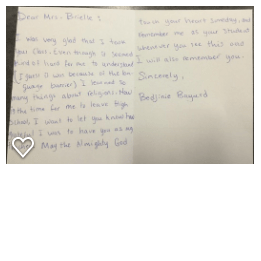 Dear Mrs. Brielle :
I was very glad that I have
your class. Even though it seemed
kind of hard for me to understand
(I guess it was because of the lan-
guage barrier) I learned so
many things about religions. Now
the time for me to leave high
school I want to let you know how
I was to have you as my
May the Almighty God
touch your heart someday, and
remember me as your student
wherever you see this and
I will also remember you.
Sincerely,
Bedjinie